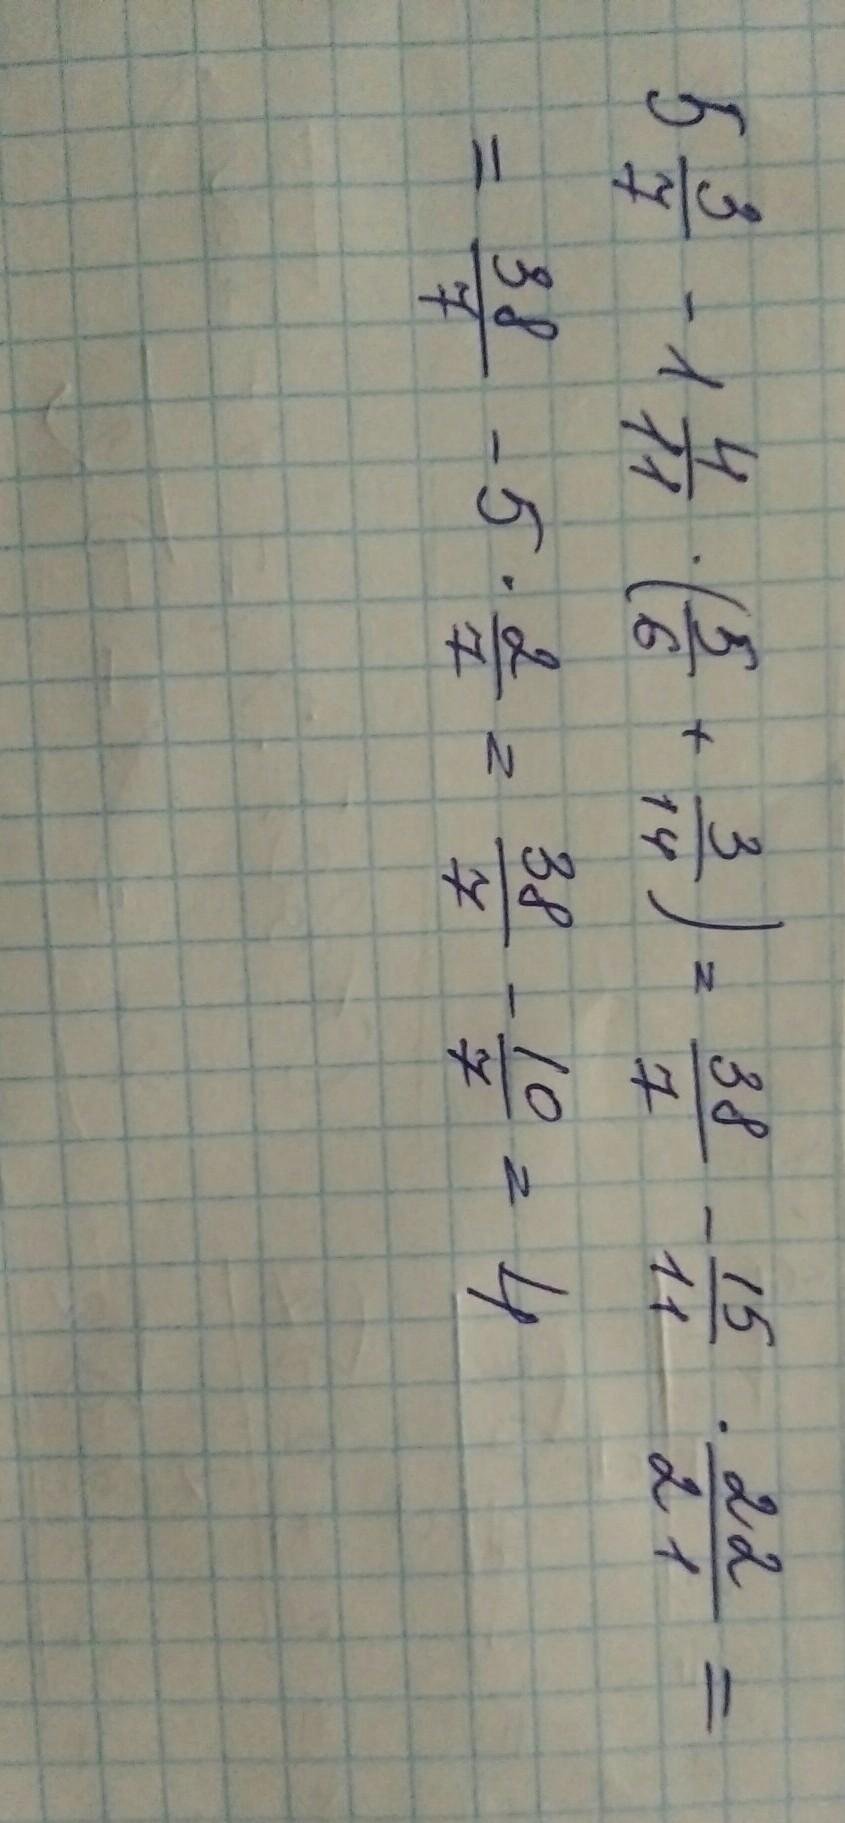 5 3/7 - 1 4/11 · (5/6 + 3/14) = 38/7 - 15/11 · 22/21 =
= 38/7 - 5 · 2/7 = 38/7 - 10/7 = 4